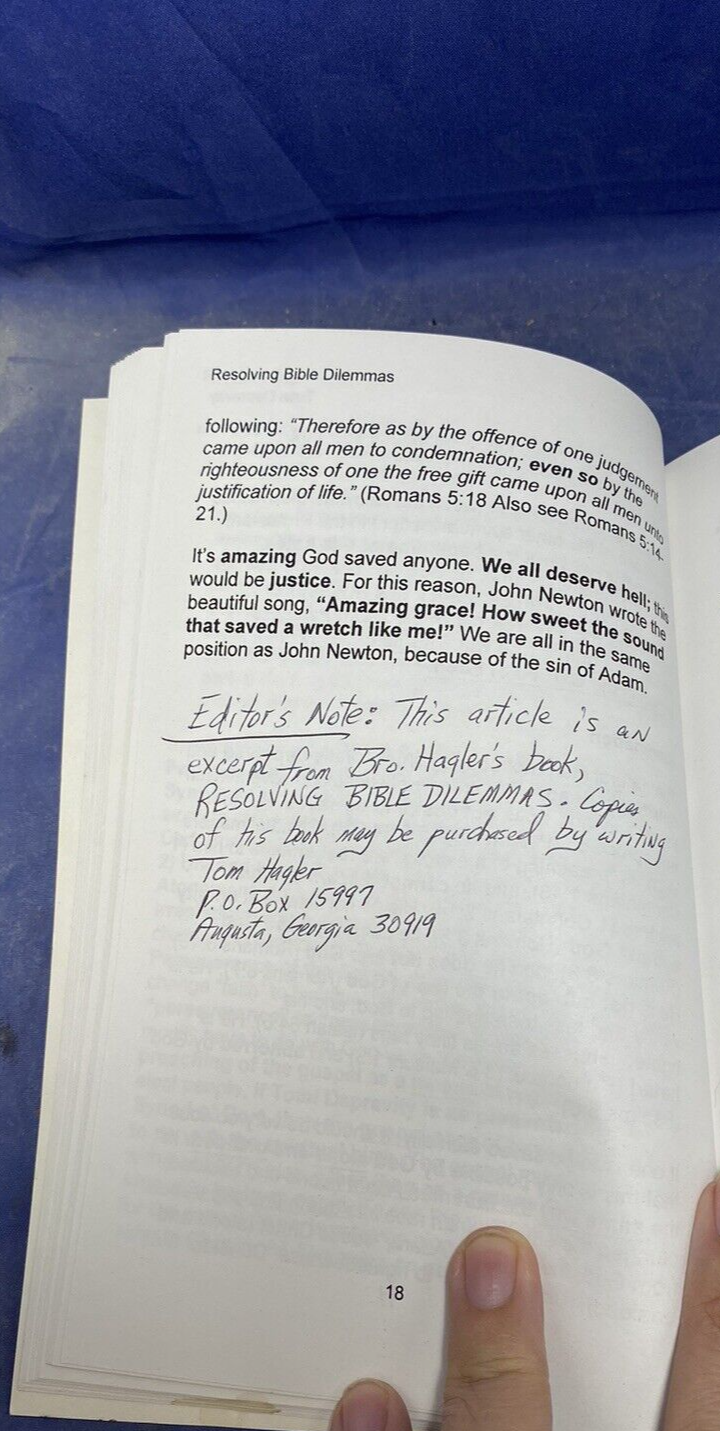 Resolving Bible Dilemmas
following: “Therefore as by the offence of one judgement
came upon all men to condemnation; even so by the
righteousness of one the free gift came upon all men unto
justification of life.” (Romans 5:18 Also see Romans 5:14-
21.)
It's amazing God saved anyone. We all deserve hell; this
would be justice. For this reason, John Newton wrote the
beautiful song, “Amazing grace! How sweet the sound
that saved a wretch like me!” We are all in the same
position as John Newton, because of the sin of Adam.
Editor's Note: This article is an
excerpt from Bro. Hagler's book,
RESOLVING BIBLE DILEMMAS. Copies
of his book may be purchased by writing
Tom Hagler
P.O. Box 15997
Augusta, Georgia 30919
18